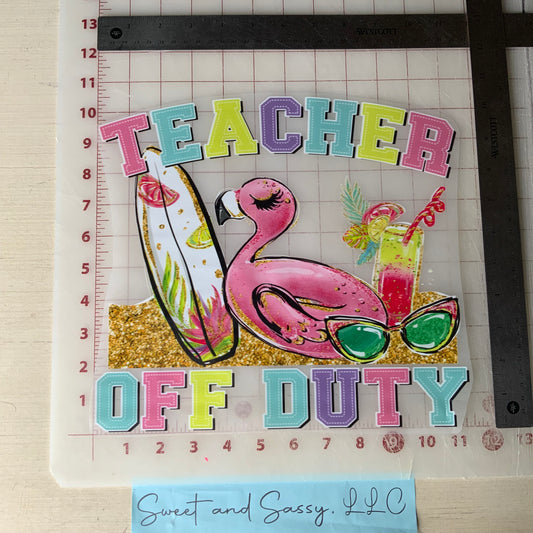 WESTCOTT
WESTCOTT
TEACHER
OFF DUTY
13
12
11
10
9
8
7
6
5
4
3
2
1
1
2
3
4
5
6
7
8
9
10
11
12
13
Sweet and Sassy, LLC